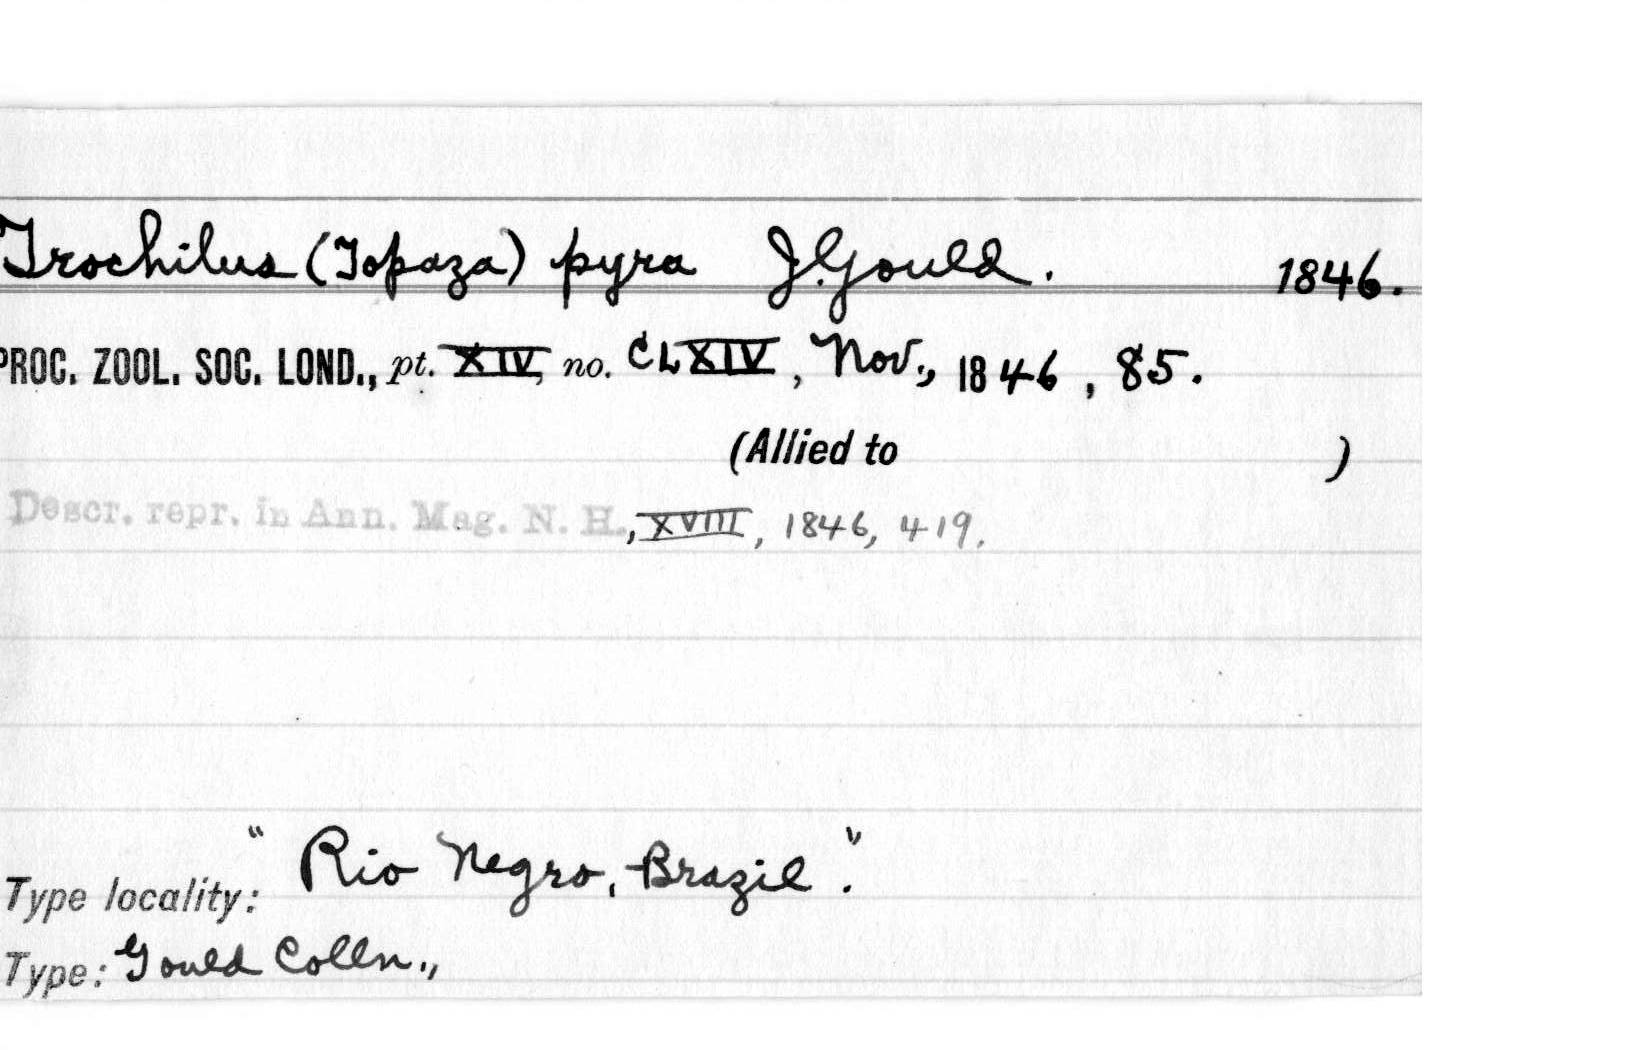 Trochilus (Topaza) pyra J. Gould. 1846.
PROC. ZOOL. SOC. LOND., pt. XIV, no. CLXIV, Nov., 1846, 85.
(Allied to )
Descr. repr. in Ann. Mag. N. H., XVIII, 1846, 419.
Type locality: "Rio Negro, Brazil".
Type: Gould Colln.,